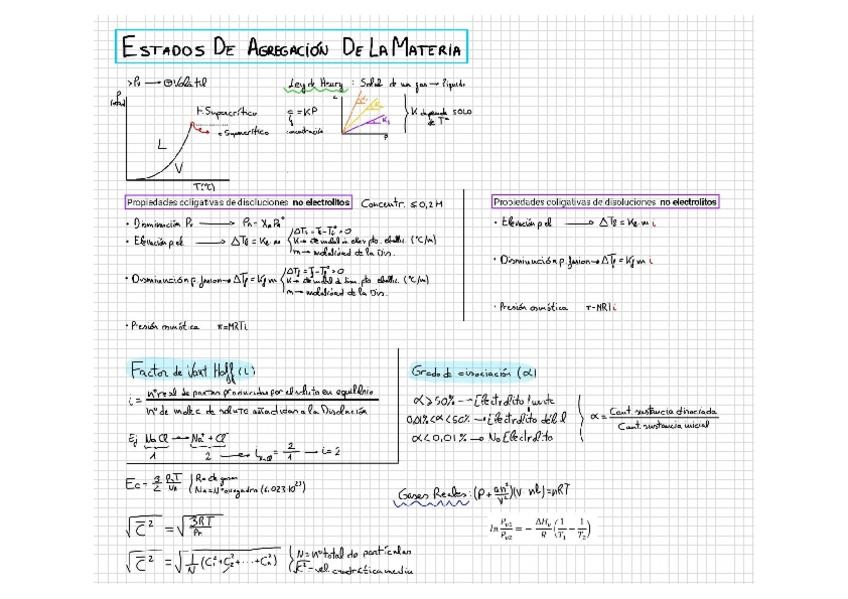 ESTADOS DE AGREGACIÓN DE LA MATERIA
>Pv → ⊕Volatil
Ley de Henry : Solub de un gas → líquido
P
F. Supercrítico
c = KP
K depende SOLO
de Tª
c. Supercrítico
concentración
L
V
P
T(ºC)
Propiedades coligativas de discluciones no electrolitos
Concentr. ≤ 0,2 M
· Disminución Pv → Pa = Xa Pa°
· Elevación p.el → ΔTe = Ke·m
K → cte molal de elev pto. ebullic. (ºC/m)
m → molalidad de la Dis.
· Disminución p. fusion → ΔTf = Kf·m
m → molalidad de la Dis.
· Presión osmótica π=MRTi
Propiedades coligativas de disoluciones no electrolitos
· Elevación p el → ΔTe = Ke·m i
· Disminución p. fusion → ΔTf = Kf·m i
· Presión osmótica π=MRTi
Factor de Vant Hoff (i)
i = nº real de partic producidas por el soluto en equilibrio
nº de molec de soluto añadidas a la Disolución
Ej NaCl → Na⁺ + Cl⁻
1 2 → i NaCl = 2/1 → i = 2
Grado de disociación (α)
α > 50% → Electrolito fuerte
0,01% < α < 50% → Electrolito débil
α < 0,01% → No Electrolito
α = Cant sustancia disociada
Cant. sustancia inicial
Ec = 3/2 RT/NA
R = cte gases
NA = Nº avogadro (6,023·10²³)
Gases Reales: (P + an²/V²)(V nb) = nRT
√c̄² = √3RT/Pm
ln Pv2/Pv2 = − ΔHv/R (1/T1 − 1/T2)
√c̄² = √1/N (C₁²+C₂²+···+Cn²)
N = nº total de partículas
√c̄² = vel. cuadrática media